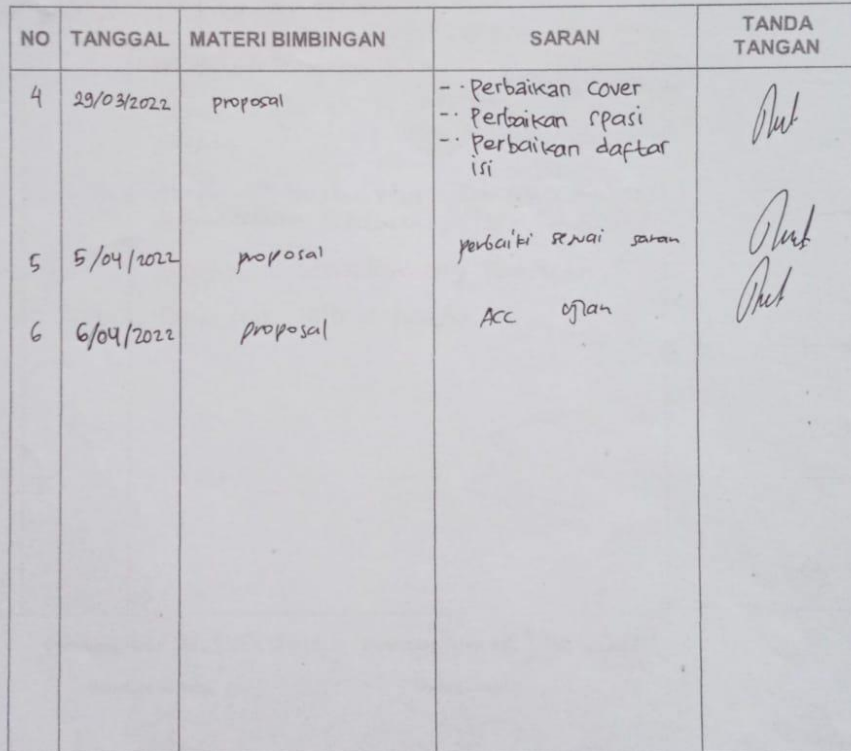 NO TANGGAL MATERI BIMBINGAN SARAN TANDA TANGAN
4 29/03/2022 proposal - Perbaikan cover
- Perbaikan spasi
- Perbaikan daftar
isi
5 5/04/2022 proposal perbaiki sesuai saran
6 6/04/2022 proposal ACC ujian